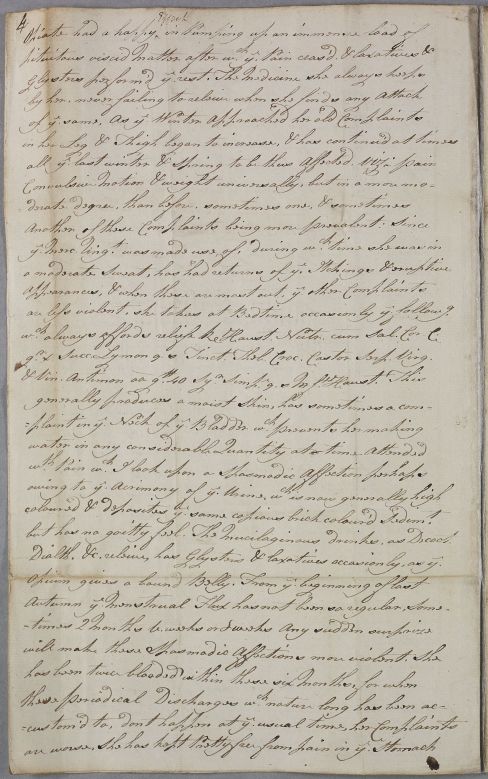 4
Effect
Opiate had a happy in Pumping up an immence load of
pituitous viscid matter after wch. ye. Pain ceas'd, & Laxatives &
Glysters perform'd ye. rest. The Medicine she always keeps
by her, never failing to releive when she finds any Attack
of ye. same. As ye. Winter Approached her old Complaints
in her Leg & Thigh began to increase, & has continued at times
all ye. last winter & Spring to be thus Affected. Viz: pain
Convulsive motion & weight universally, but in a more mo-
-derate degree, than before, sometimes one, & sometimes
Another of these Complaints being more prevalent: since
ye. Merc: Ungt. was made use of, during wch. time she was in
a moderate Sweat, has had returns of ye. Itchings & eruptive
Appearances, & when these are most out, ye. other Complaints
are less violent. she takes at Bedtime occasionly ye. follow.g
wch. always affords relief. Re Haust. Neutr. cum Sal. Cor. C.
Succ: Lymon q s Tinct. Theb. Croc. Castor Serp. Virg.
& Vin. Antimon aa gtt. 40 Syr. Simp: q. s M ft Haust. This
generally produces a moist skin, has sometimes a com-
-plaint in ye. Neck of ye. Bladder wch. prevents her making
water in any considerable Quantity at a time Attended
wth. Pain wch. I look upon a Spasmodic Affection perhaps
owing to ye. Acrimony of ye. Urine, wch. is now generally high
coloured & deposites ye. same copious brick colour'd Sedimt.
but has no goutty feel. The Mucilaginous drinks, as Decoct.
Dialth. &c. releive, has Glysters & Laxatives occasionly, as ye.
Opium gives a bound Belly. From ye. beginning of last
Autumn ye. Menstrual Flux has not been so regular, some-
-times 2 Months 6 weeks or 8 weeks Any sudden surprize
will make these Spasmodic Affections more violent. She
has been twice blooded within these six Months, for when
these periodical Discharges wch. nature long has been ac-
-custom'd to, dont happen at ye. usual time, her Complaints
are worse, She has kept pretty free from pain in ye. Stomach